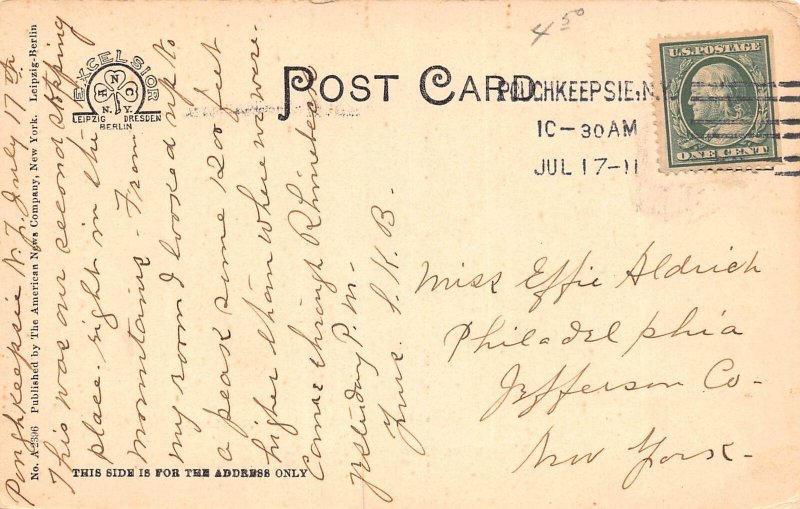 4 50
POST CARD
POUGHKEEPSIE, N.Y.
10-30AM
JUL 17-11
U.S. POSTAGE
ONE CENT
EXCELSIOR
A N C
N.Y.
LEIPZIG DRESDEN
BERLIN
No. A2396 Published by The American News Company, New York. Leipzig-Berlin
Poughkeepsie N.Y. July 17th
This was our second stopping
place. right in the
mountains - From
my room I looked up to
a peak some 1200 feet
higher than where we were.
Came through Rhinebeck
yesterday P.M.-
Yours. S.K.B.-
Miss Effie Aldrich
Philadelphia
Jefferson Co-
New York.-
THIS SIDE IS FOR THE ADDRESS ONLY